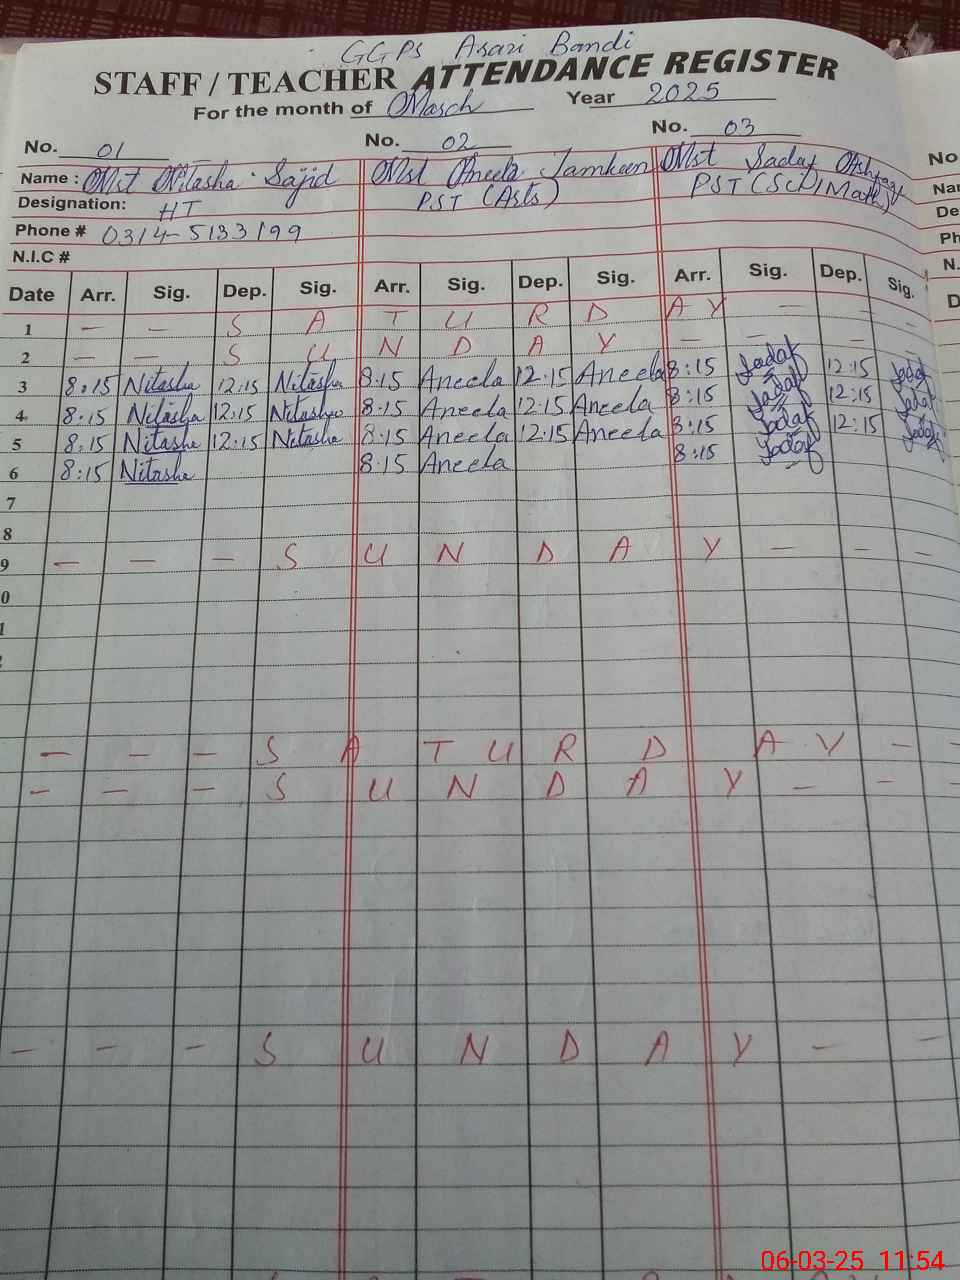 GGPS Asari Bandi
STAFF / TEACHER ATTENDANCE REGISTER
For the month of March Year 2025
No. 01 No. 02 No. 03
Name : Mst Nitasha Sajid Mst Aneela Mst Sadaf Ashfaq
Designation: HT PST (Arts) PST (Sci/Math)
Phone # 0314-5133199
N.I.C #
Date Arr. Sig. Dep. Sig. Arr. Sig. Dep. Sig. Arr. Sig. Dep. Sig.
1 - - S A T U R D A Y - - -
2 - - S U N D A Y - - -
3 8:15 Nitasha 12:15 Nitasha 8:15 Aneela 12:15 Aneela 8:15 Sadaf 12:15 Sadaf
4 8:15 Nitasha 12:15 Nitasha 8:15 Aneela 12:15 Aneela 8:15 Sadaf 12:15 Sadaf
5 8:15 Nitasha 12:15 Nitasha 8:15 Aneela 12:15 Aneela 8:15 Sadaf 12:15 Sadaf
6 8:15 Nitasha 8:15 Aneela 8:15 Sadaf
7
8
9 - - - S U N D A Y - - -
0
- - - S A T U R D A Y - -
- - - S U N D A Y - - -
- - - S U N D A Y - -
No
Nar
De
Ph
N.
D
06-03-25 11:54